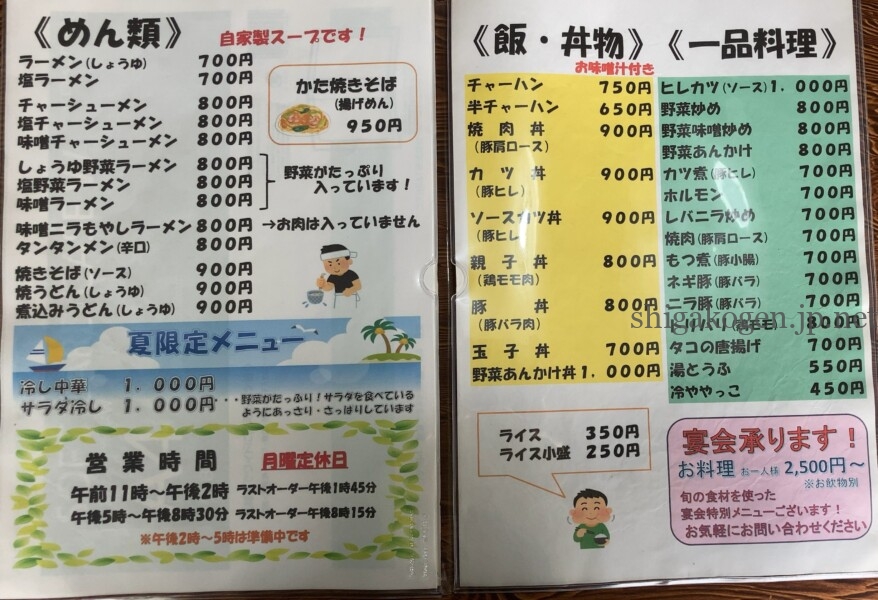 《めん類》 自家製スープです！
ラーメン(しょうゆ) 700円
塩ラーメン 700円
チャーシューメン 800円
塩チャーシューメン 800円
味噌チャーシューメン 800円
しょうゆ野菜ラーメン 800円
塩野菜ラーメン 800円
味噌ラーメン 800円
野菜がたっぷり
入っています！
味噌ニラもやしラーメン 800円 →お肉は入っていません
タンタンメン(辛口) 800円
焼きそば(ソース) 900円
焼うどん(しょうゆ) 900円
煮込みうどん(しょうゆ) 900円
かた焼きそば
(揚げめん)
950円
夏限定メニュー
冷し中華 1．000円
サラダ冷し 1．000円・・・野菜がたっぷり！サラダを食べている
ようにあっさり・さっぱりしています
営業時間 月曜定休日
午前11時～午後2時 ラストオーダー午後1時45分
午後5時～午後8時30分 ラストオーダー午後8時15分
※午後2時～5時は準備中です
《飯・丼物》
お味噌汁付き
チャーハン 750円
半チャーハン 650円
焼肉丼 900円
(豚肩ロース)
カツ丼 900円
(豚ヒレ)
ソースカツ丼 900円
(豚ヒレ)
親子丼 800円
(鶏モモ肉)
豚丼 800円
(豚バラ肉)
玉子丼 700円
野菜あんかけ丼 1．000円
ライス 350円
ライス小盛 250円
《一品料理》
ヒレカツ(ソース) 1．000円
野菜炒め 800円
野菜味噌炒め 800円
野菜あんかけ 800円
カツ煮(豚ヒレ) 700円
ホルモン 700円
レバニラ炒め 700円
焼肉(豚肩ロース) 700円
もつ煮(豚小腸) 700円
ネギ豚(豚バラ) 700円
ニラ豚(豚バラ) 700円
(鶏モモ) 800円
タコの唐揚げ 700円
湯とうふ 550円
冷ややっこ 450円
shigakogen.jp.net
宴会承ります！
お料理 お一人様 2,500円～
※お飲物別
旬の食材を使った
宴会特別メニューございます！
お気軽にお問い合わせください